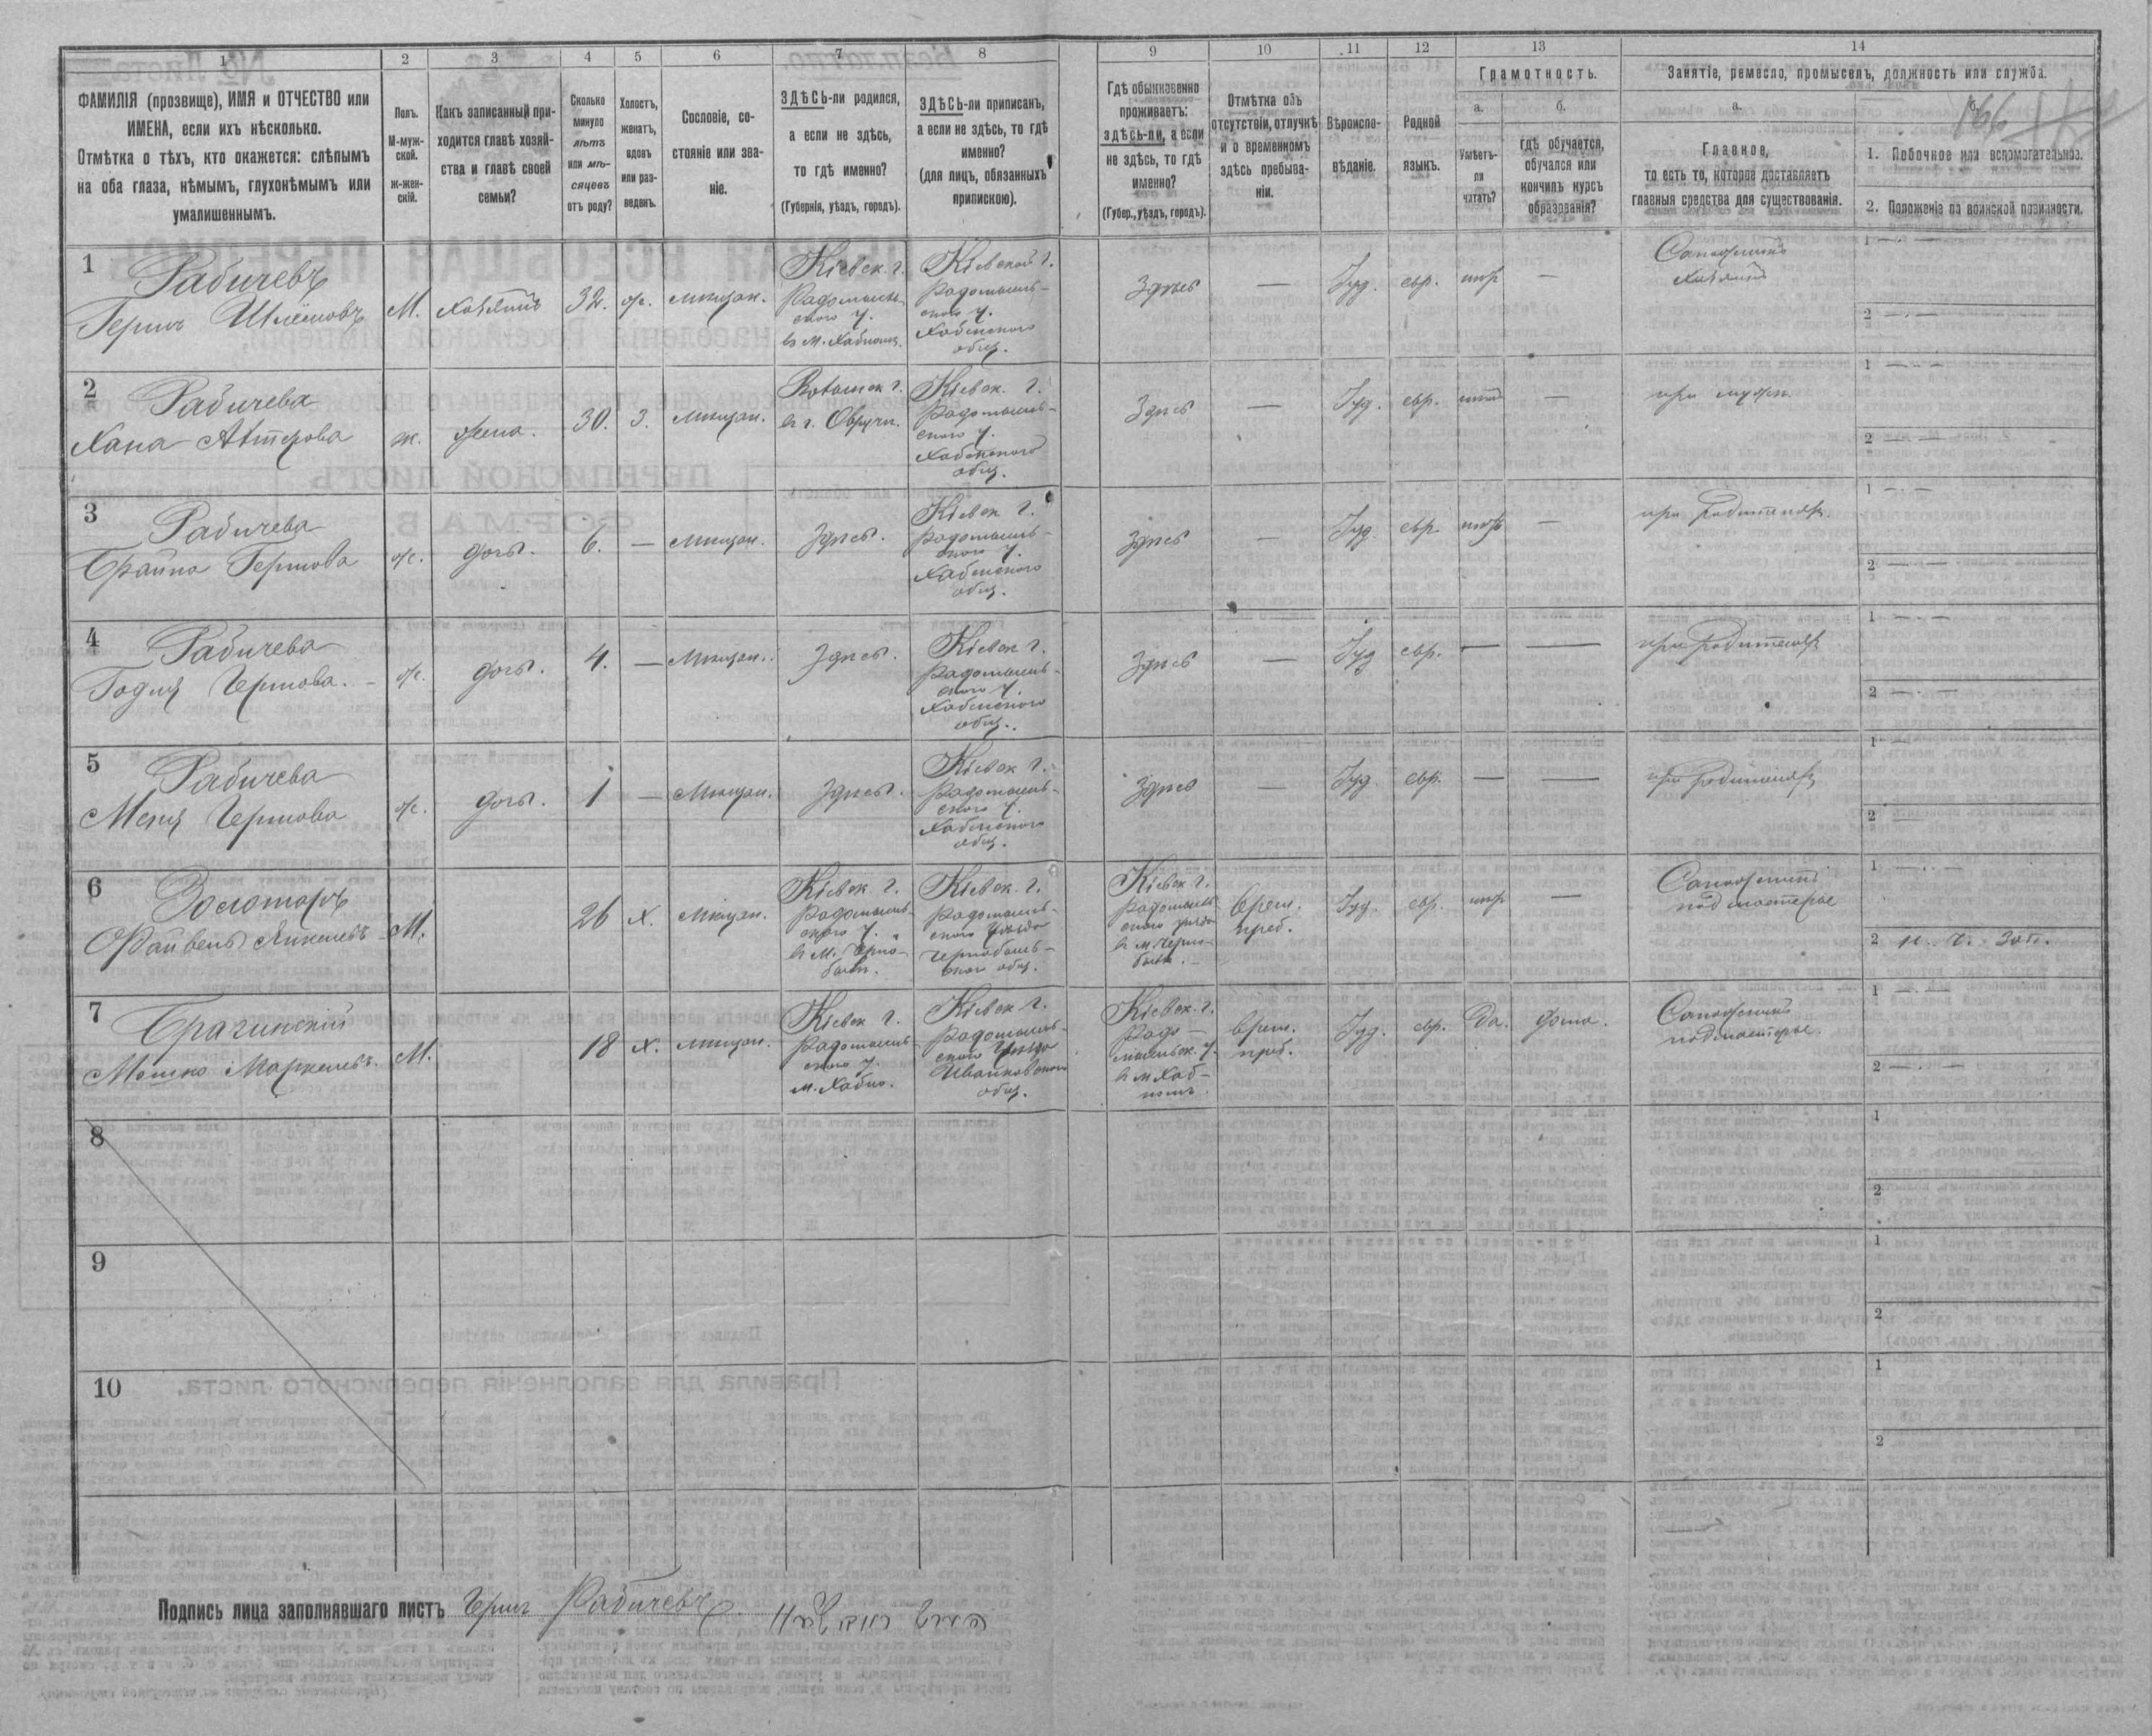 1 2 3 4 5 6 7 8 9 10 11 12 13 14
ФАМИЛІЯ (прозвище), ИМЯ и ОТЧЕСТВО или
ИМЕНА, если ихъ нѣсколько.
Отмѣтка о тѣхъ, кто окажется: слѣпымъ
на оба глаза, нѣмымъ, глухонѣмымъ или
умалишеннымъ.
Полъ.
М-муж-
ской.
ж-жен-
скій.
Какъ записанный при-
ходится главѣ хозяй-
ства и главѣ своей
семьи?
Сколько
минуло
лѣтъ
или мѣ-
сяцевъ
отъ роду?
Холостъ,
женатъ,
вдовъ
или раз-
веденъ.
Сословіе, со-
стояніе или зва-
ніе.
ЗДѢСЬ-ли родился,
а если не здѣсь,
то гдѣ именно?
(Губернія, уѣздъ, городъ).
ЗДѢСЬ-ли приписанъ,
а если не здѣсь, то гдѣ
именно?
(для лицъ, обязанныхъ
припискою).
Гдѣ обыкновенно
проживаетъ:
здѣсь-ли, а если
не здѣсь, то гдѣ
именно?
(Губер., уѣздъ, городъ).
Отмѣтка объ
отсутствіи, отлучкѣ
и о временномъ
здѣсь пребыва-
ніи.
Вѣроиспо-
вѣданіе.
Родной
языкъ.
Грамотность.
а.
Умѣетъ-
ли
читать?
б.
гдѣ обучается,
обучался или
кончилъ курсъ
образованія?
Занятіе, ремесло, промыселъ, должность или служба.
а.
Главное,
то есть то, которое доставляетъ
главныя средства для существованія.
б.
166
1. Побочное или вспомогательное.
2. Положеніе по воинской повинности.
1
Рабичевъ
Гершъ Шлёмовъ
М.
хозяинъ
32.
ж.
мѣщан.
Кіевск. г.
Радомысль-
скаго у.
въ м. Хабномъ.
Кіевской г.
Радомысль-
скаго у.
Хабенскаго
общ.
Здѣсь
—
Іуд.
евр.
—
Сапожникъ
хозяинъ
1 — . —
2 — . —
2
Рабичева
Хана
ж.
жена.
30.
З.
Мѣщан.
Волынск г.
въ г. Овручѣ.
Кіевск. г.
Радомысль-
скаго у.
Хабенскаго
общ.
Здѣсь
—
Іуд.
евр.
—
при мужѣ
1 — . —
2 — . —
3
Рабичева
Брайна Гершова
ж.
дочь.
6.
—
Мѣщан.
Здѣсь.
Кіевск г.
Радомысль-
скаго у.
Хабенскаго
общ.
Здѣсь
—
Іуд.
евр.
—
при родителях
1 — . —
2 — . —
4
Рабичева
Годля Гершова. —
ж.
дочь.
4.
—
Мѣщан.
Здѣсь.
Кіевск г.
Радомысль-
скаго у.
Хабенскаго
общ.
Здѣсь
—
Іуд
евр.
—
—
при родителях
1 — . —
2 — . —
5
Рабичева
Меня Гершова
ж.
дочь.
1
—
Мѣщан.
Здѣсь.
Кіевск г.
Радомысль-
скаго у.
Хабенскаго
общ.
Здѣсь
—
Іуд.
евр.
—
—
при родителях
1 —
2 —
6
Золотаръ
Файвель Янкелевъ
М.
26
х.
Мѣщан.
Кіевск. г.
Радомысль-
скаго у.
въ м. Черно-
былѣ.
Кіевск. г.
Радомысль-
скаго уѣзда
Чернобыль-
скаго общ.
Кіевск г.
Радомысль-
скаго уѣзда
въ м. Черно-
былѣ.
Врем.
преб.
Іуд.
евр.
—
Сапожникъ
подмастерье
1 — . . —
2 н. ч. зап.
7
Брагинскій
Мошко Маркелевъ.
М.
18
х.
мѣщан.
Кіевск г.
Радомысль-
скаго у.
м. Хабно.
Кіевск г.
Радомысль-
скаго уѣзда
Иванковскаго
общ.
Кіевск. г.
Радо-
мысльск. у.
въ м Хаб-
номъ.
Врем.
преб.
Іуд.
евр.
Да.
дома.
Сапожникъ
подмастерье.
1 — . —
2 — . —
8
1
2
9
1
2
10
1
2
Подпись лица заполнявшаго листъ Гершъ Рабичевъ.